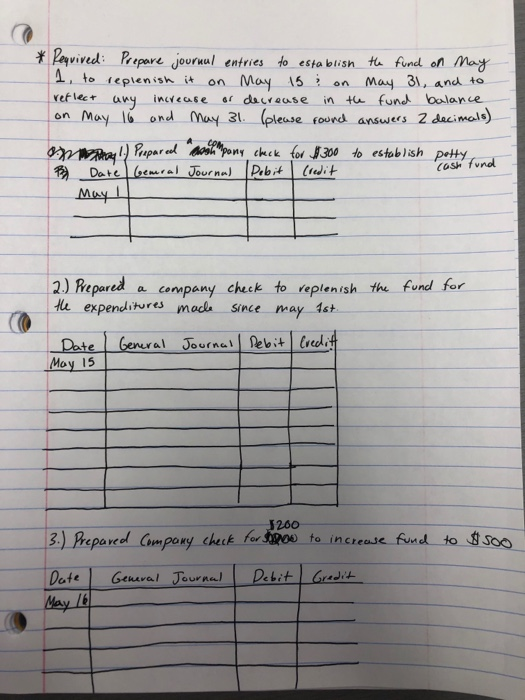 * Required: Prepare journal entries to establish the fund on May
1, to replenish it on May 15 ; on May 31, and to
reflect any increase or decrease in the fund balance
on May 16 and May 31. (please round answers 2 decimals)
1.) Prepared a company check for $300 to establish petty
cash fund
Date General Journal Debit Credit
May 1
2.) Prepared a company check to replenish the fund for
the expenditures made since may 1st.
Date General Journal Debit Credit
May 15
$200
3.) Prepared Company check for to increase fund to $500
Date General Journal Debit Credit
May 16